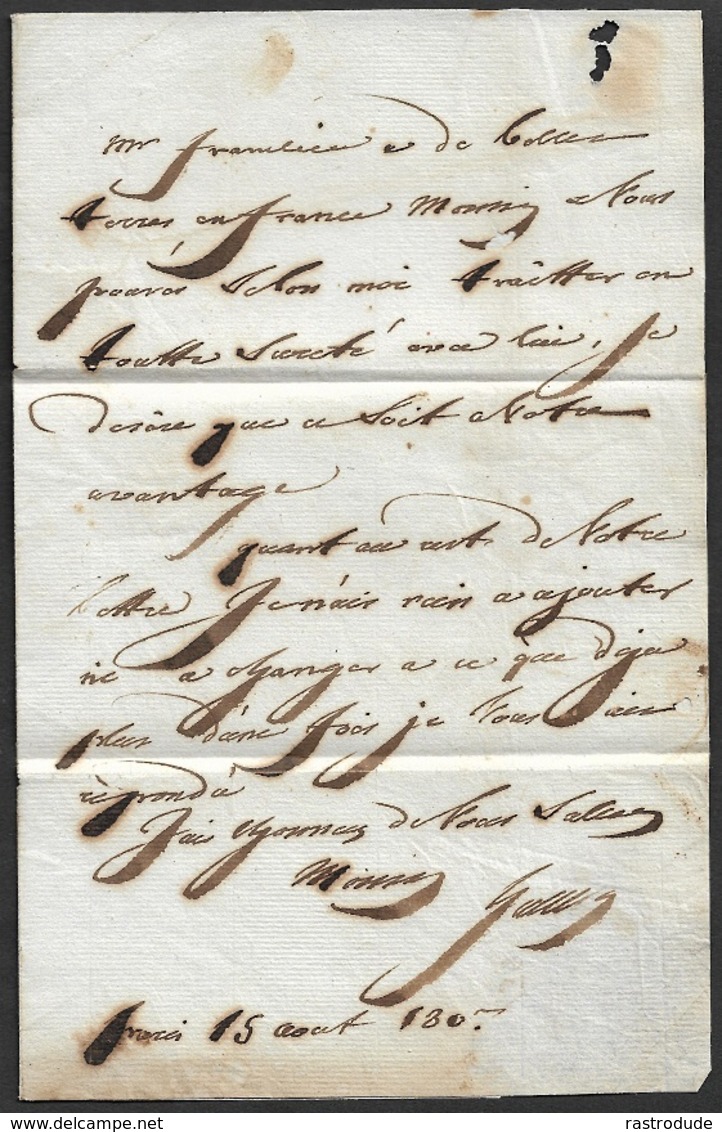 mr franclieu a de belles
terres en france Monsieur Vous
pouvés Selon moi traitter en
toutte Sureté avec lui, je
desire que ce Soit Votre
avantage
quant au reste de Votre
lettre Je n'ais rien a ajouter
ni a changer a ce que deja
plus d'une fois je Vous aie
répondû
J'ais l'honneur de Vous Saluer
Monsieur
15 aout 180
rastrodude